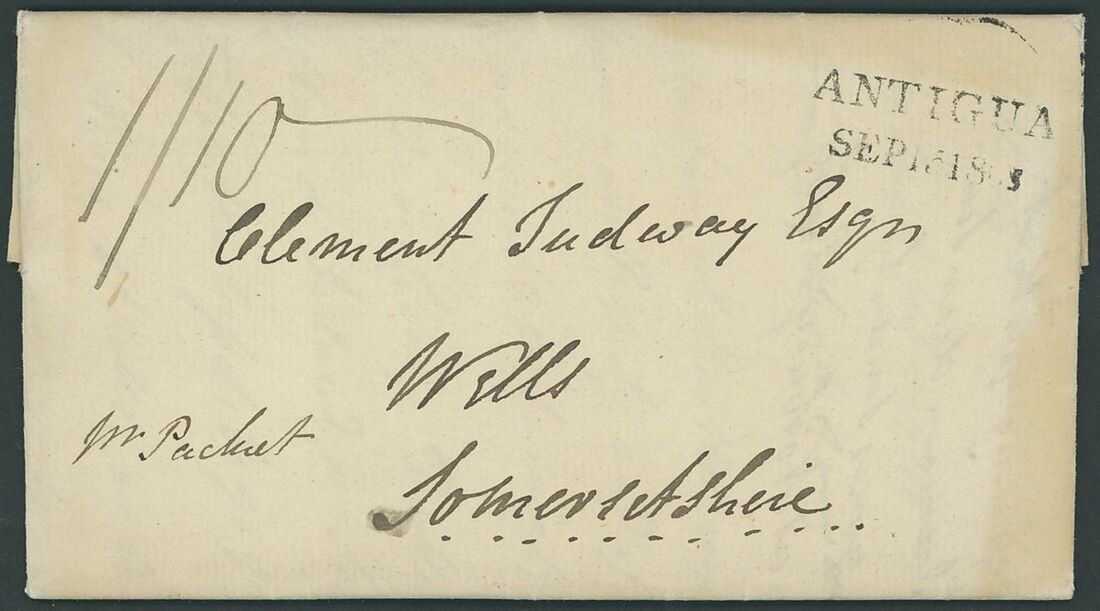 1/10
ANTIGUA
SEP 15 18
Clement Tudway Esqr
Wells
pr Packet
Somersetshire